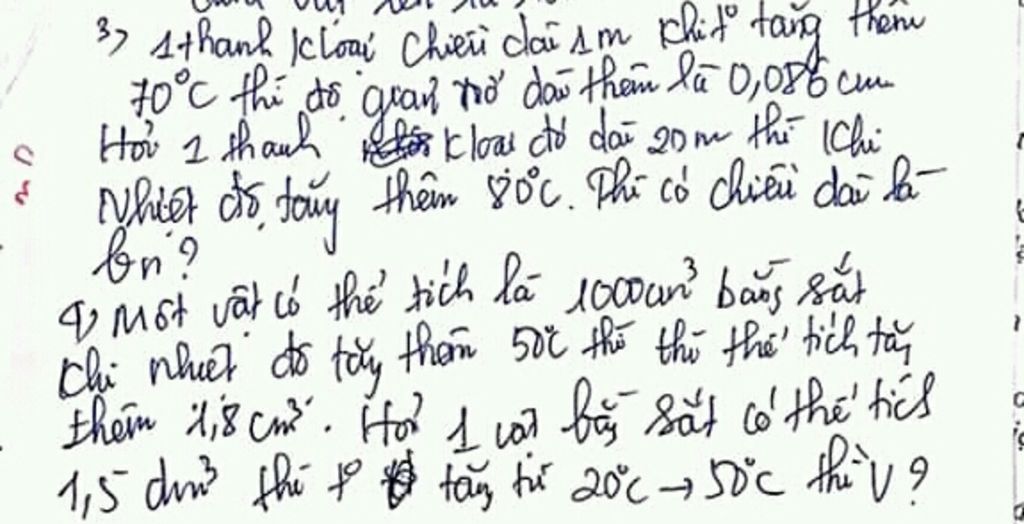 3) 1 thanh kloại chiều dài 1m khi t° tăng thêm
70°C thì độ giãn nở dài thêm là 0,086 cm
Hỏi 1 thanh kloại đó dài 20m thì khi
Nhiệt độ tăng thêm 80°C. Thì có chiều dài là
bn?
4) Một vật có thể tích là 1000cm³ bằng sắt
khi nhiệt độ tăng thêm 50°C thì thì thể tích tăng
thêm 1,8cm³. Hỏi 1 vật bằng sắt có thể tích
1,5 dm³ thì t° tăng từ 20°C → 50°C thì V?